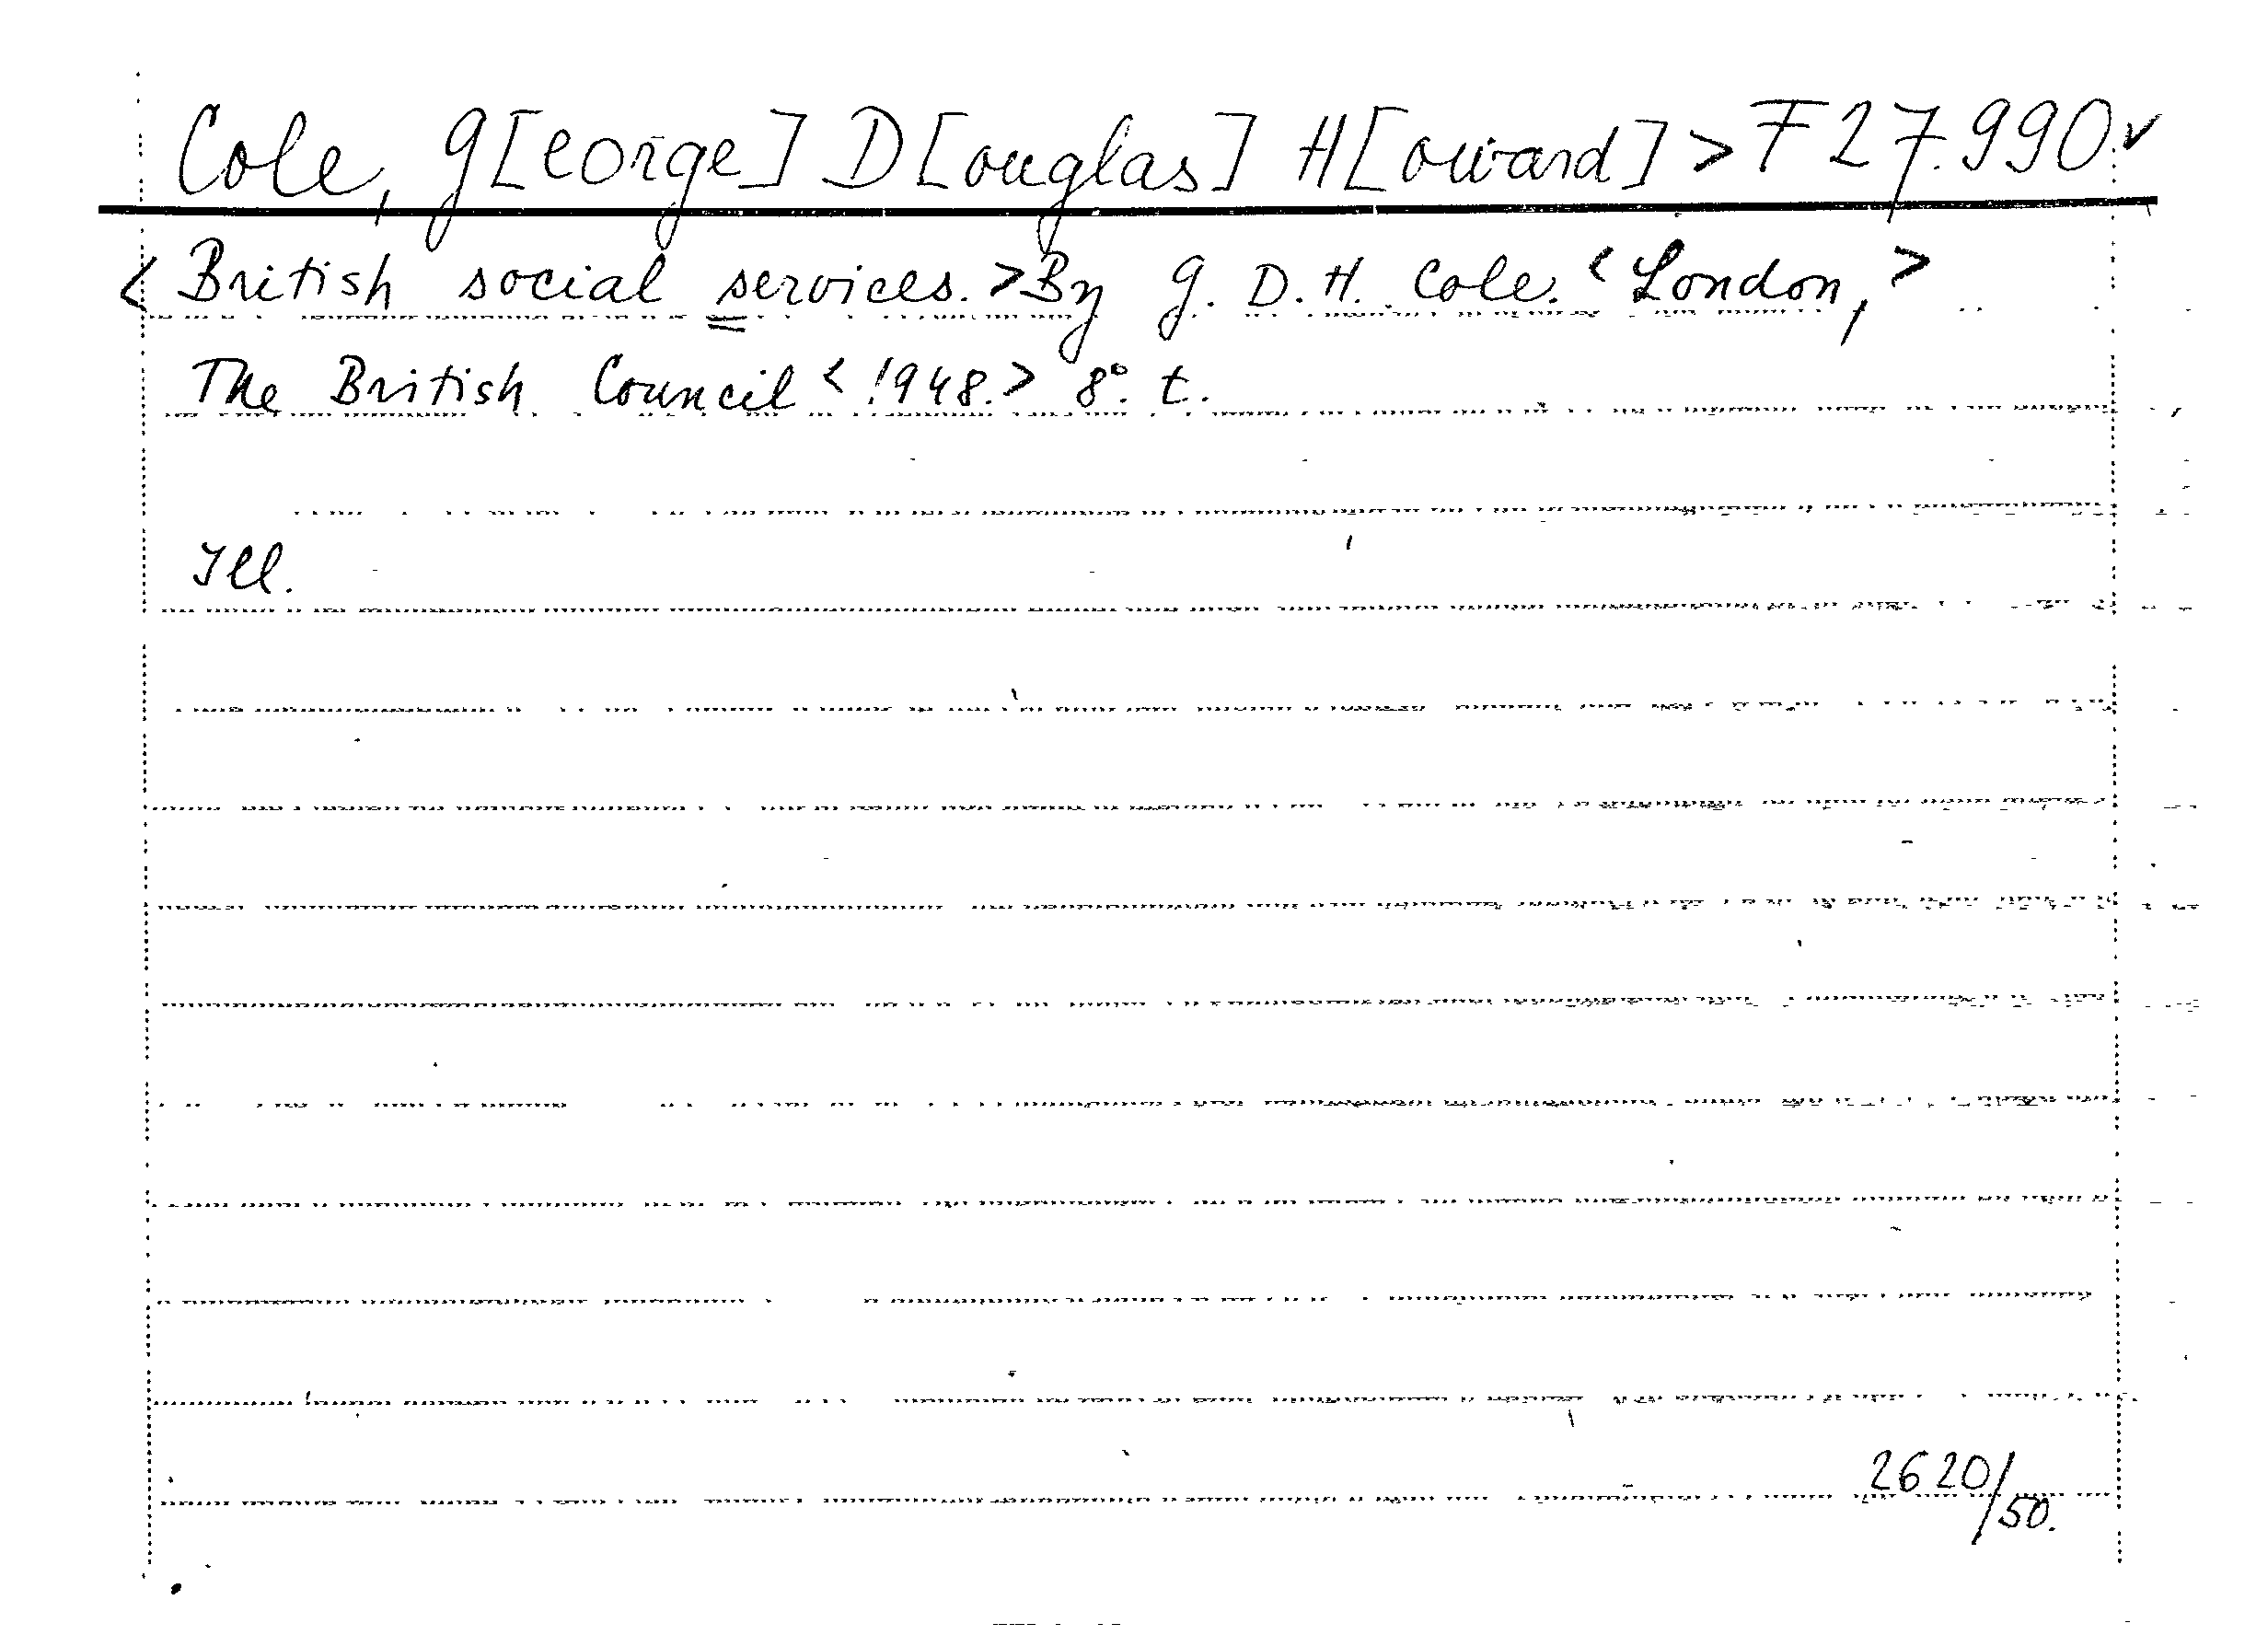 Cole, G[eorge] D[ouglas] H[oward] > F 27.990.✓
< British social services. > By G. D. H. Cole. < London, >
The British Council < 1948. > 8°. t.
Ill.
2620/50.